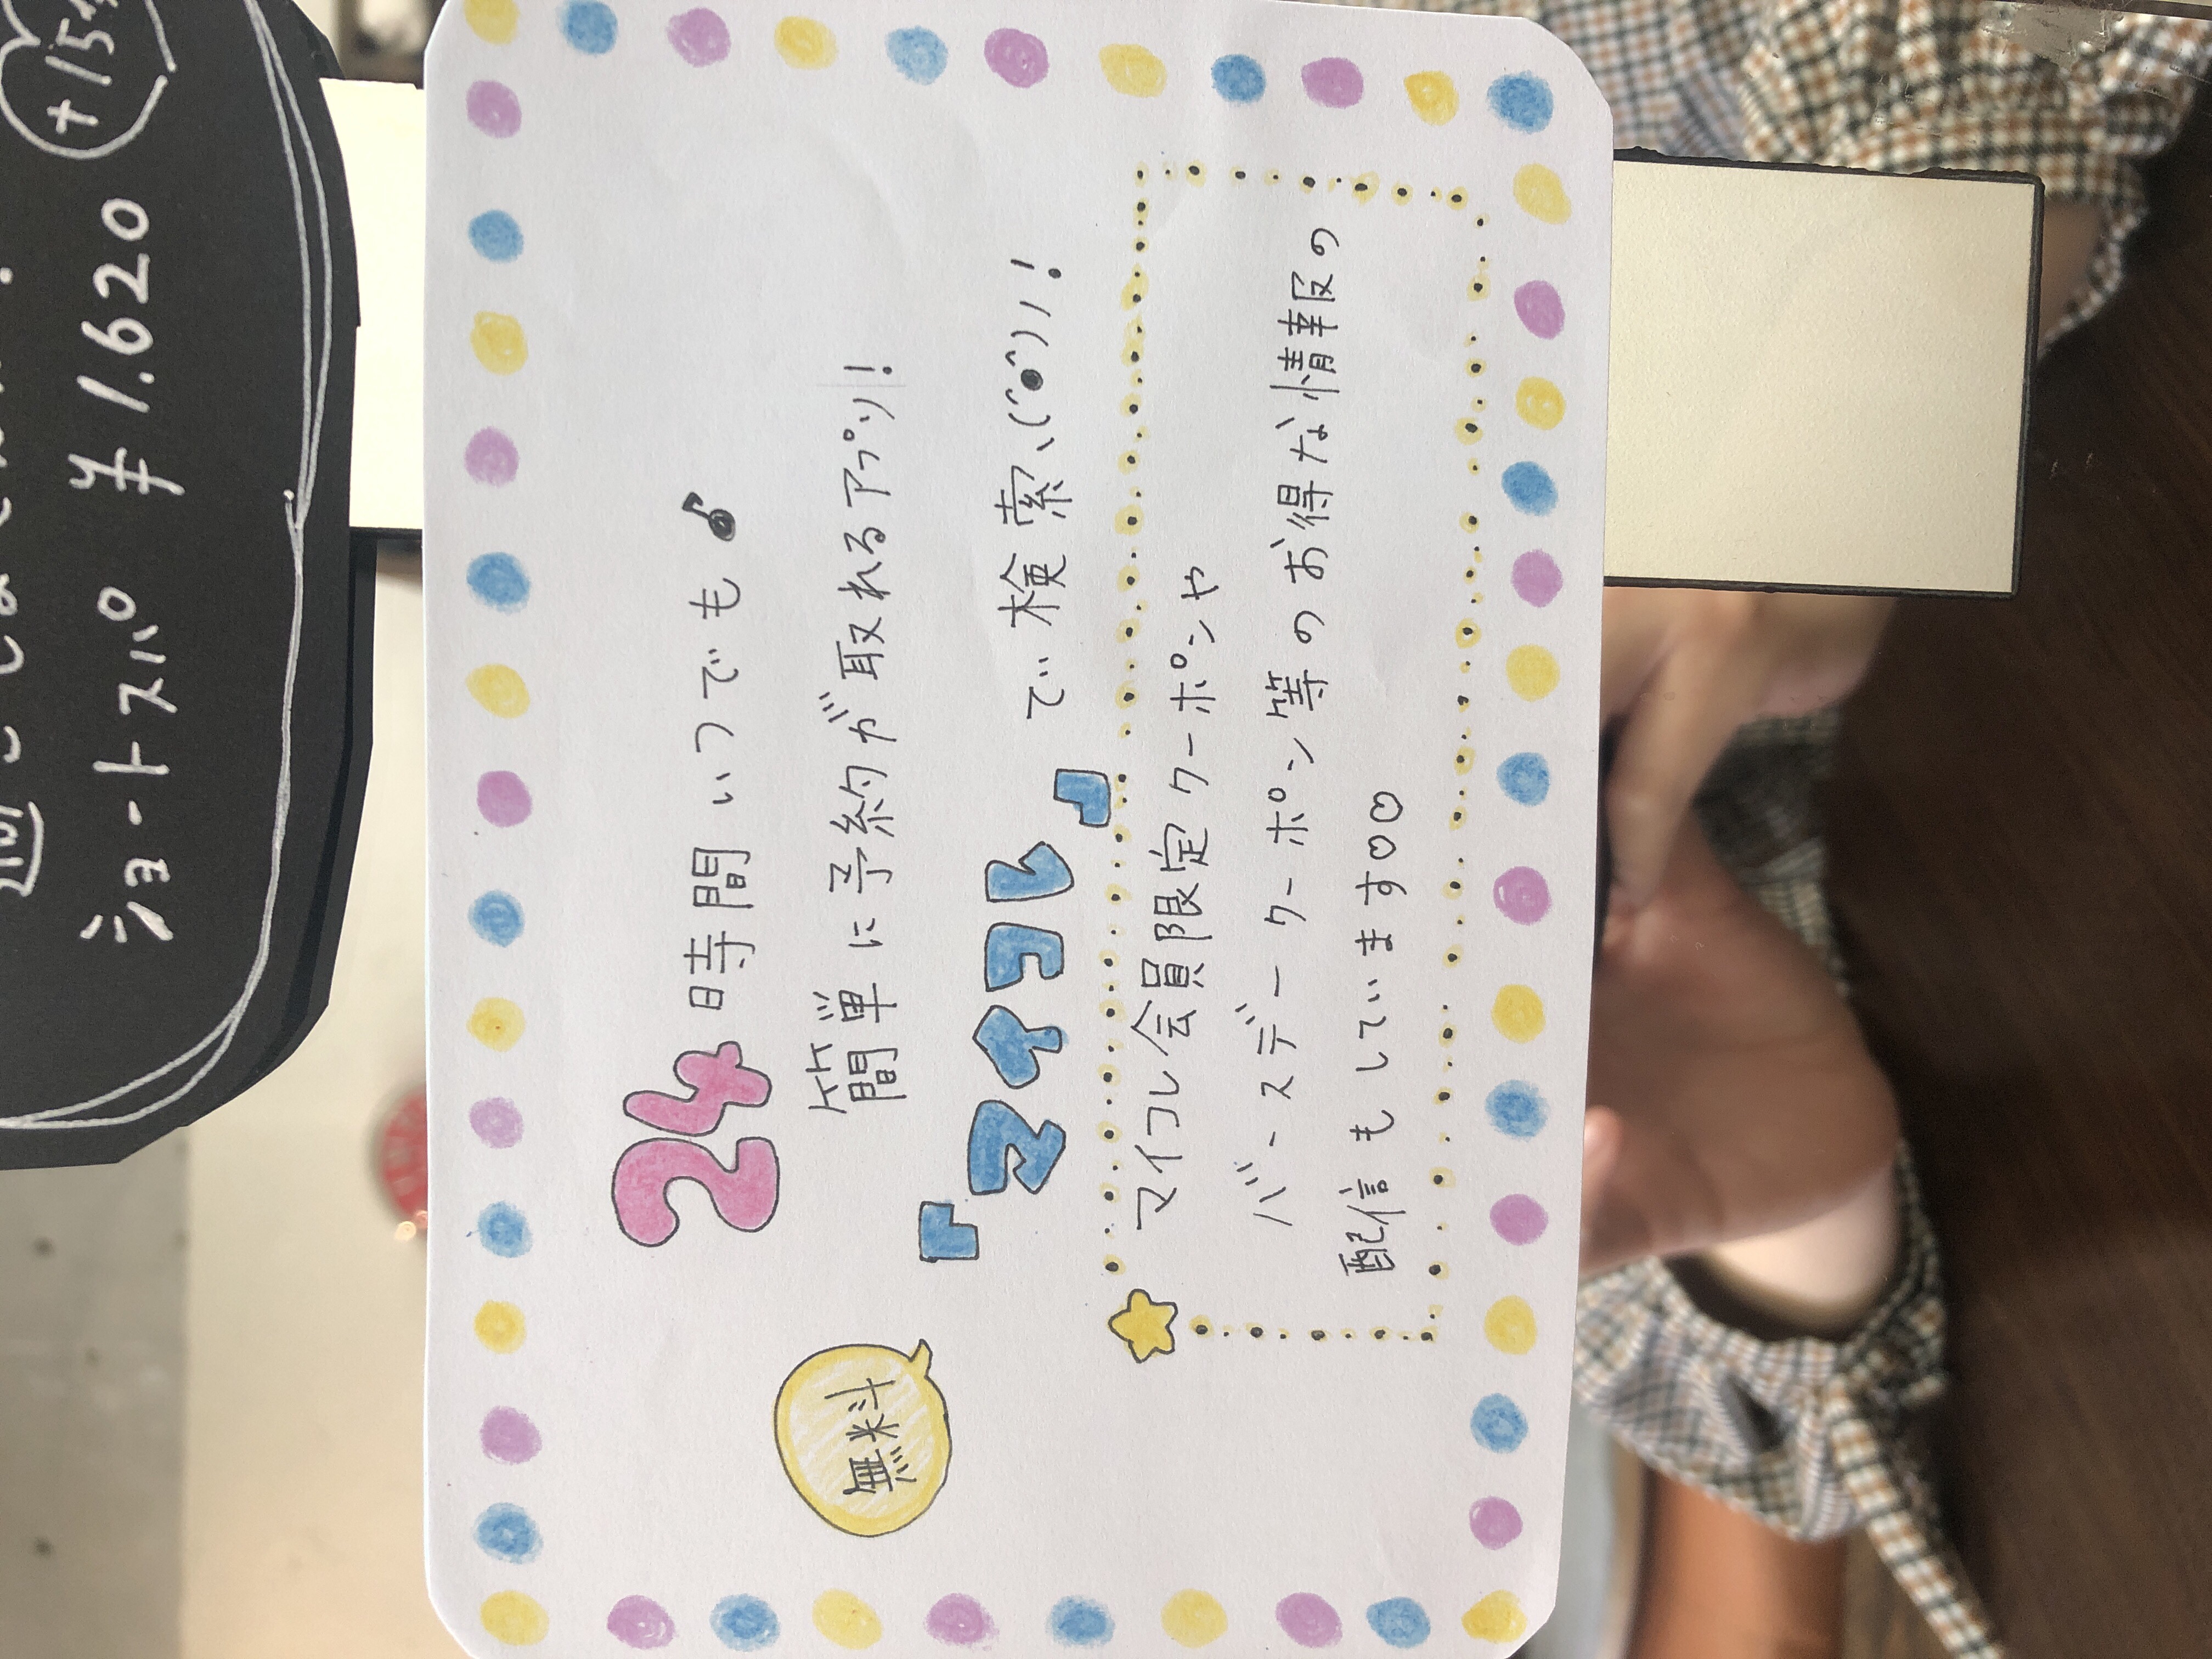 +15分
ショートスパ ¥1.620
24時間いつでも♪
簡単に予約が取れるアプリ!
無料
『マイコレ』で検索ヽ(^o^)ノ!
マイコレ会員限定クーポンや
バースデークーポン等のお得な情報の
配信もしています♡♡